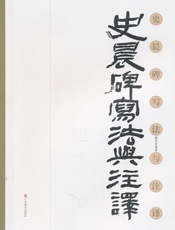 史晨碑寫法與注譯
史晨碑写法与注译